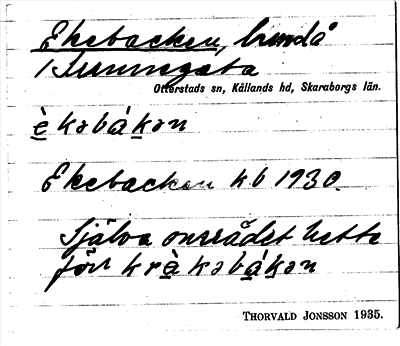 Ekebacken, bmdå
1 Brunnsgata
Otterstads sn, Kållands hd, Skaraborgs län.
è kəbákən
Ekebacken kb 1930.
Själva området hette
förr krà kəbákən
THORVALD JONSSON 1935.